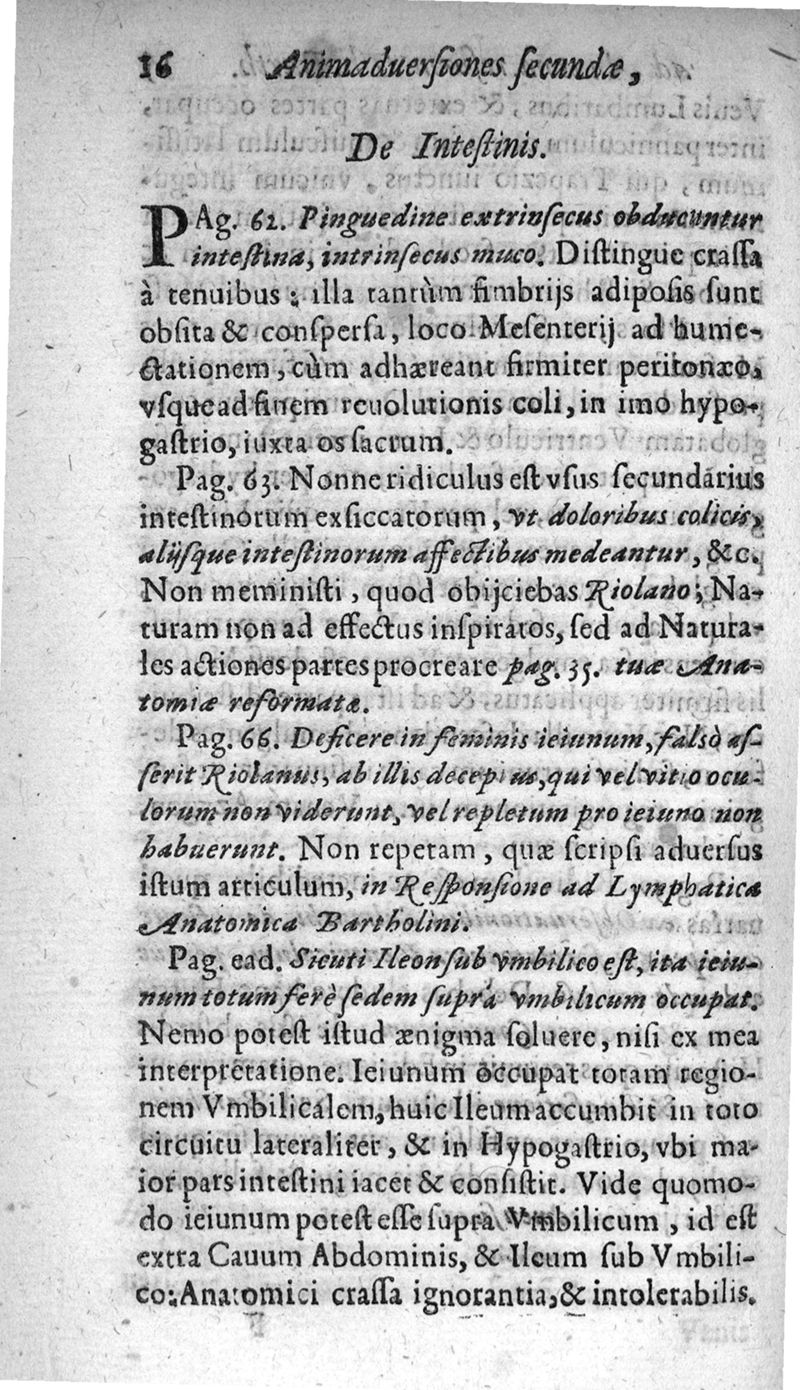 16 Animaduersiones secundæ,
De Intestinis.
PAg. 62. Pinguedine extrinsecus obducuntur
intestina, intrinsecus muco. Distingue crassa
à tenuibus; illa tantùm fimbrijs adiposis sunt
obsita & conspersa, loco Mesenterij ad hume-
ctationem, cùm adhæreant firmiter peritonæo,
vsque ad finem reuolutionis coli, in imo hypo-
gastrio, iuxta os sacrum.
Pag. 63. Nonne ridiculus est vsus secundarius
intestinorum exsiccatorum, vt doloribus colicis,
aliisque intestinorum affectibus medeantur, &c.
Non meministi, quod obijciebas Riolano; Na-
turam non ad effectus inspiratos, sed ad Natura-
les actiones partes procreare pag. 35. tuæ Ana-
tomiæ reformatæ.
Pag. 66. Deficere in feminis ieiunum, falsò as-
serit Riolanus, ab illis deceptus, qui vel vitio ocu-
lorum non viderunt, vel repletum pro ieiuno non
habuerunt. Non repetam, quæ scripsi aduersus
istum articulum, in Responsione ad Lymphatica
Anatomica Bartholini.
Pag. ead. Sicuti Ileon sub vmbilico est, ita ieiu-
num totum ferè sedem supra vmbilicum occupat.
Nemo potest istud ænigma soluere, nisi ex mea
interpretatione. Ieiunum occupat totam regio-
nem Vmbilicalem, huic Ileum accumbit in toto
circuitu lateraliter, & in Hypogastrio, vbi ma-
ior pars intestini iacet & consistit. Vide quomo-
do ieiunum potest esse supra Vmbilicum, id est
extra Cauum Abdominis, & Ileum sub Vmbili-
co: Anatomici crassa ignorantia, & intolerabilis.